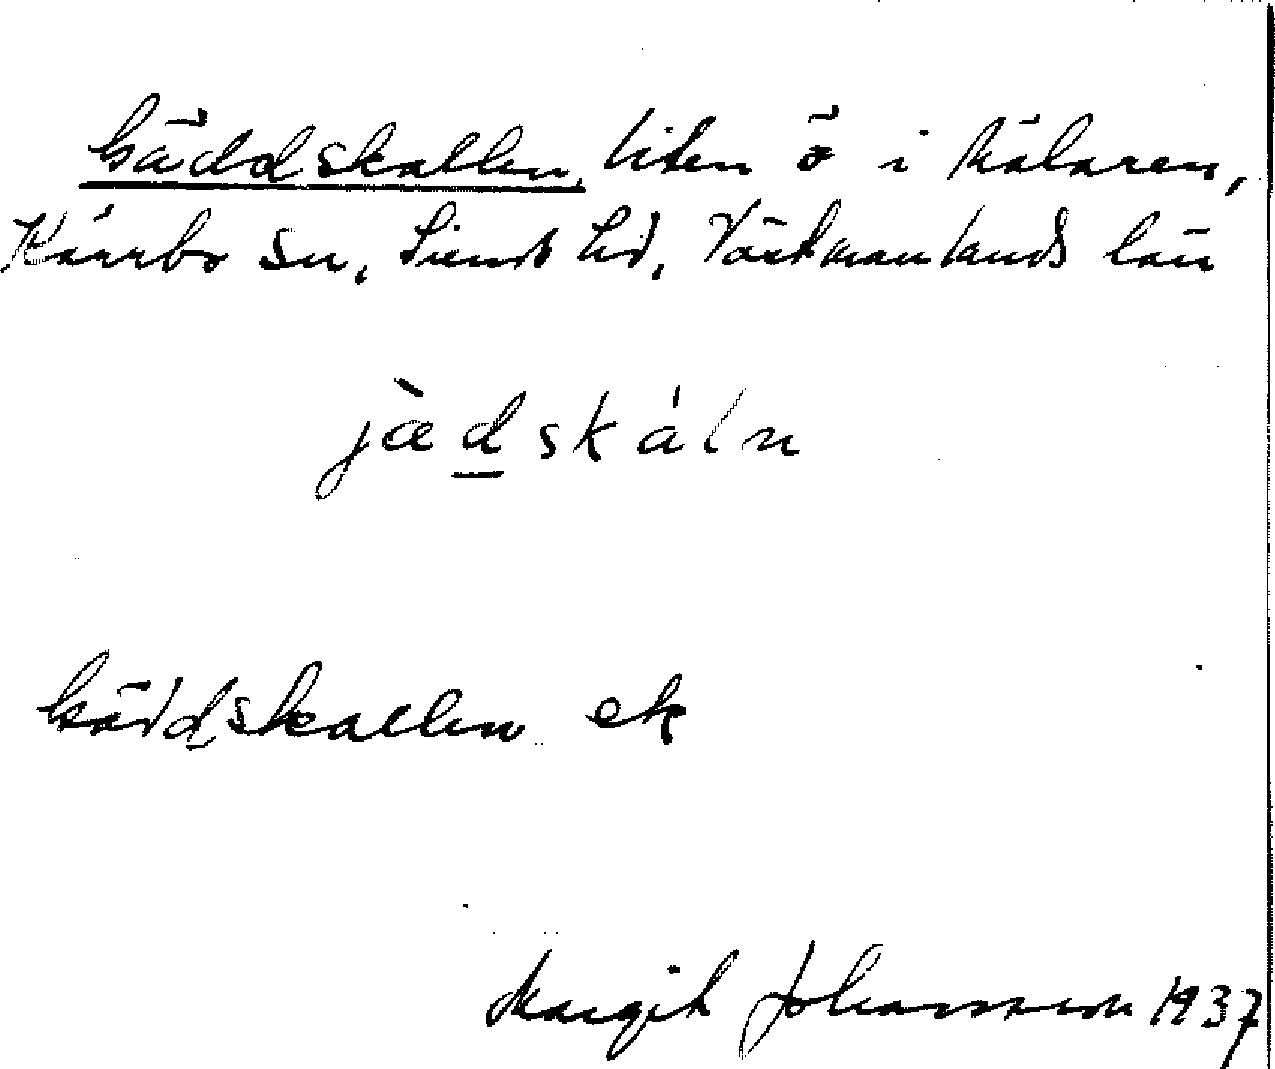 Gäddskallen, liten ö i Mälaren,
Kärrbo sn, Siende hd, Västmanlands län
jàdskáln
Gäddskallen ek
Margit Johansson 1937